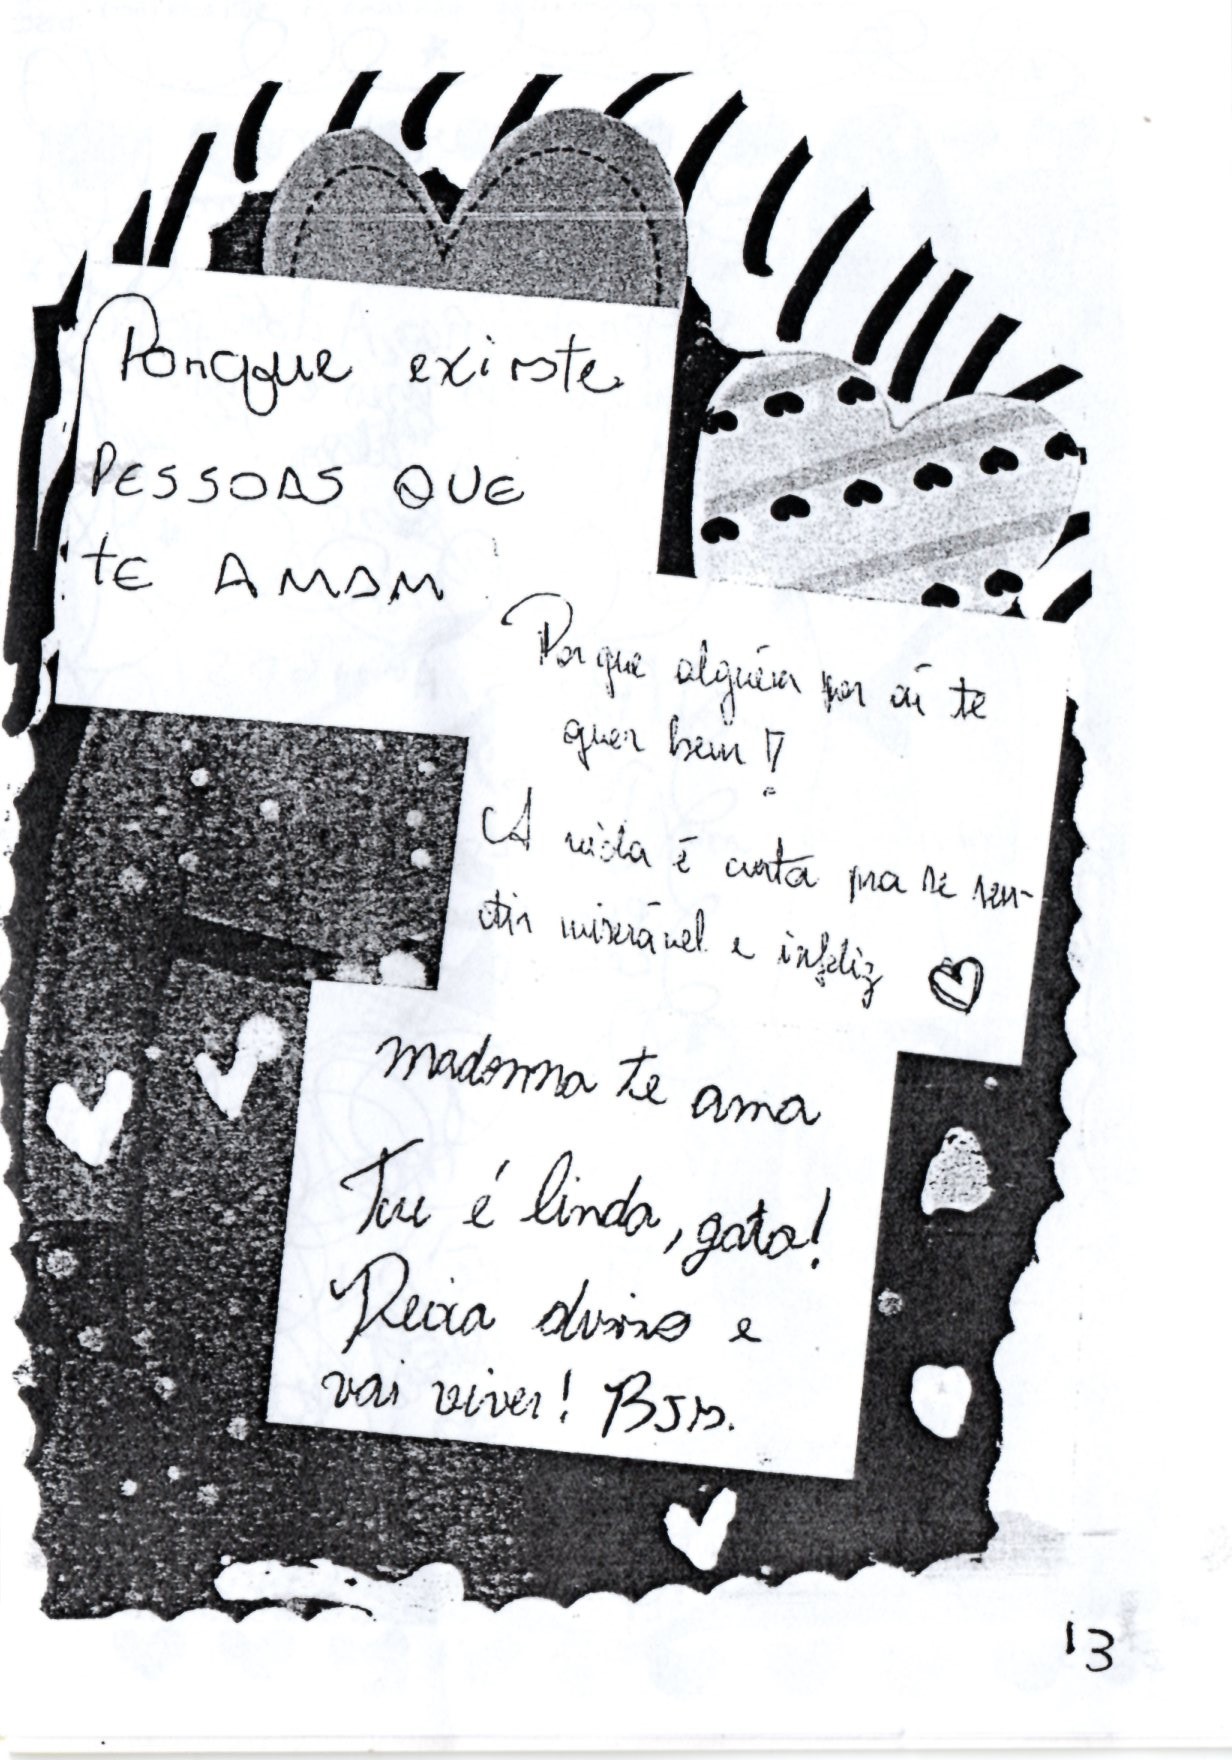 Porque existe
PESSOAS QUE
TE AMAM
Porque alguém por aí te
quer bem!!
A vida é curta pra se sen-
tir miserável e infeliz
madonna te ama
Tu é linda, gata!
Deixa disso e
vai viver! BJs.
13